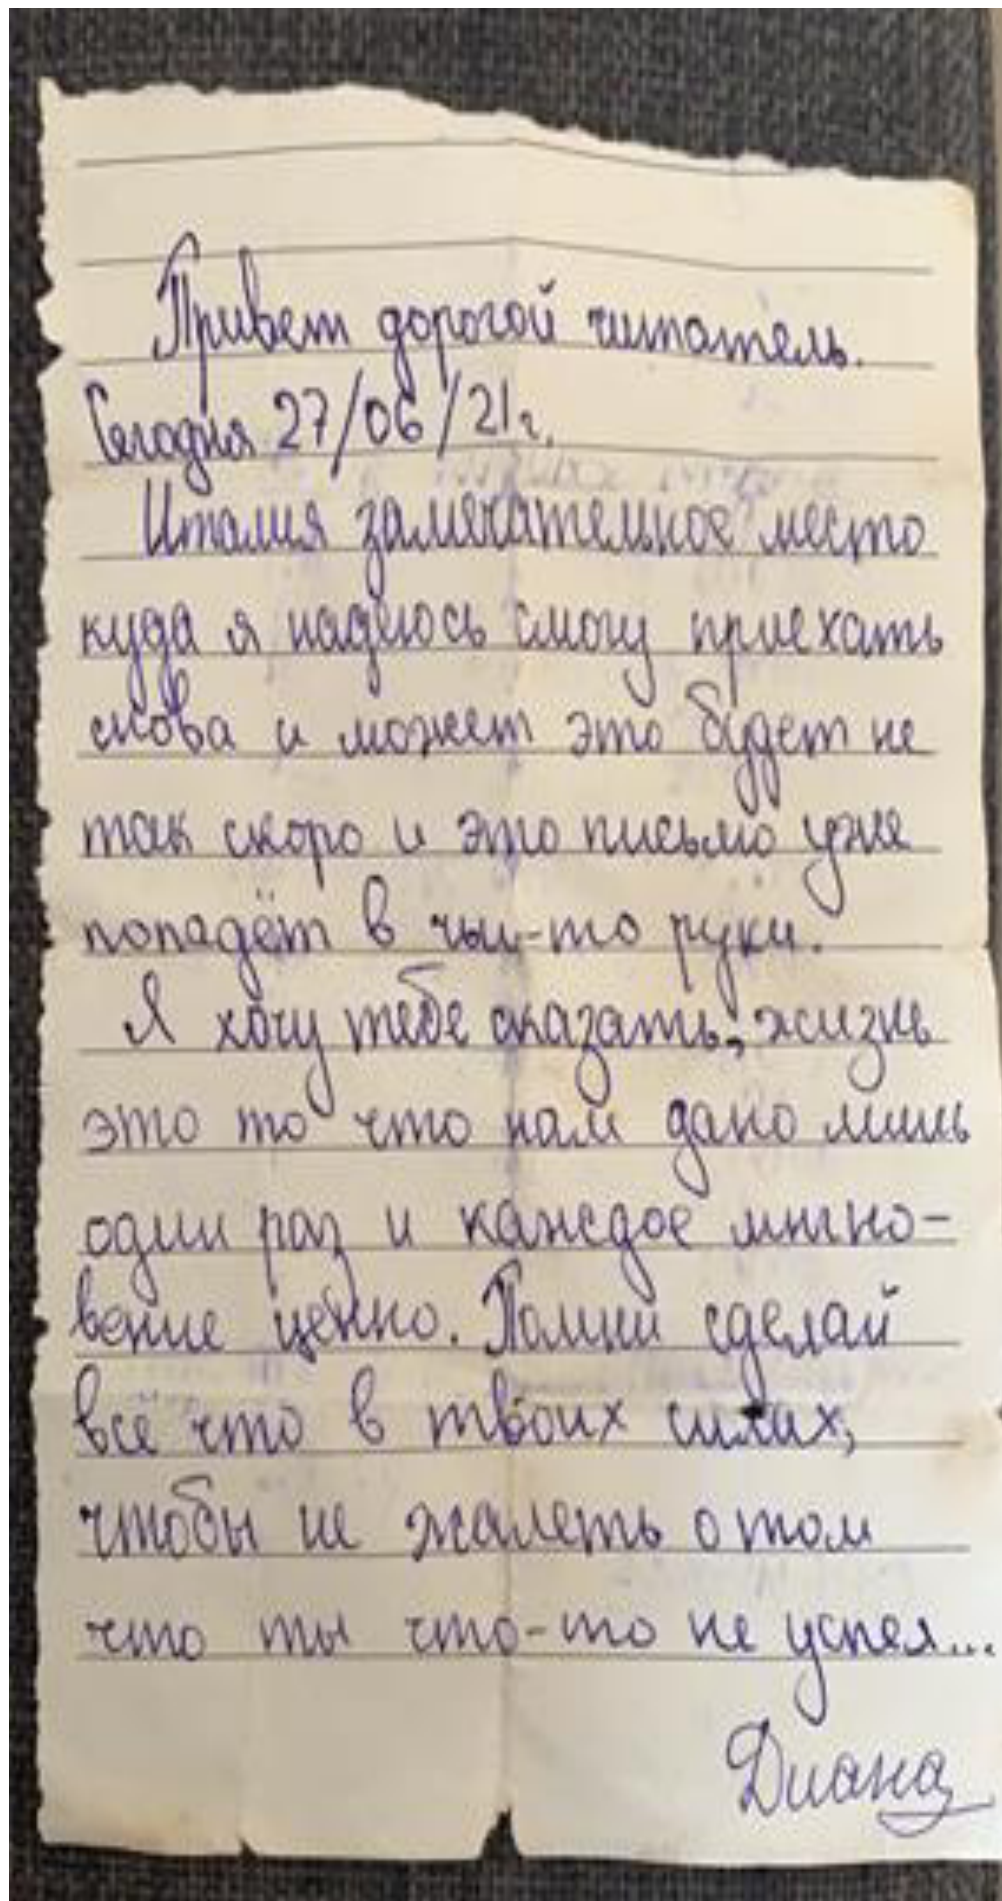 Привет дорогой читатель.
Сегодня 27/06/21г.
Италия замечательное место
куда я надеюсь смогу приехать
снова и может это будет не
так скоро и это письмо уже
попадёт в чьи-то руки.
Я хочу тебе сказать, жизнь
это то что нам дано лишь
один раз и каждое мгно-
вение ценно. Помни сделай
всё что в твоих силах,
чтобы не жалеть о том
что ты что-то не успел...
Диана